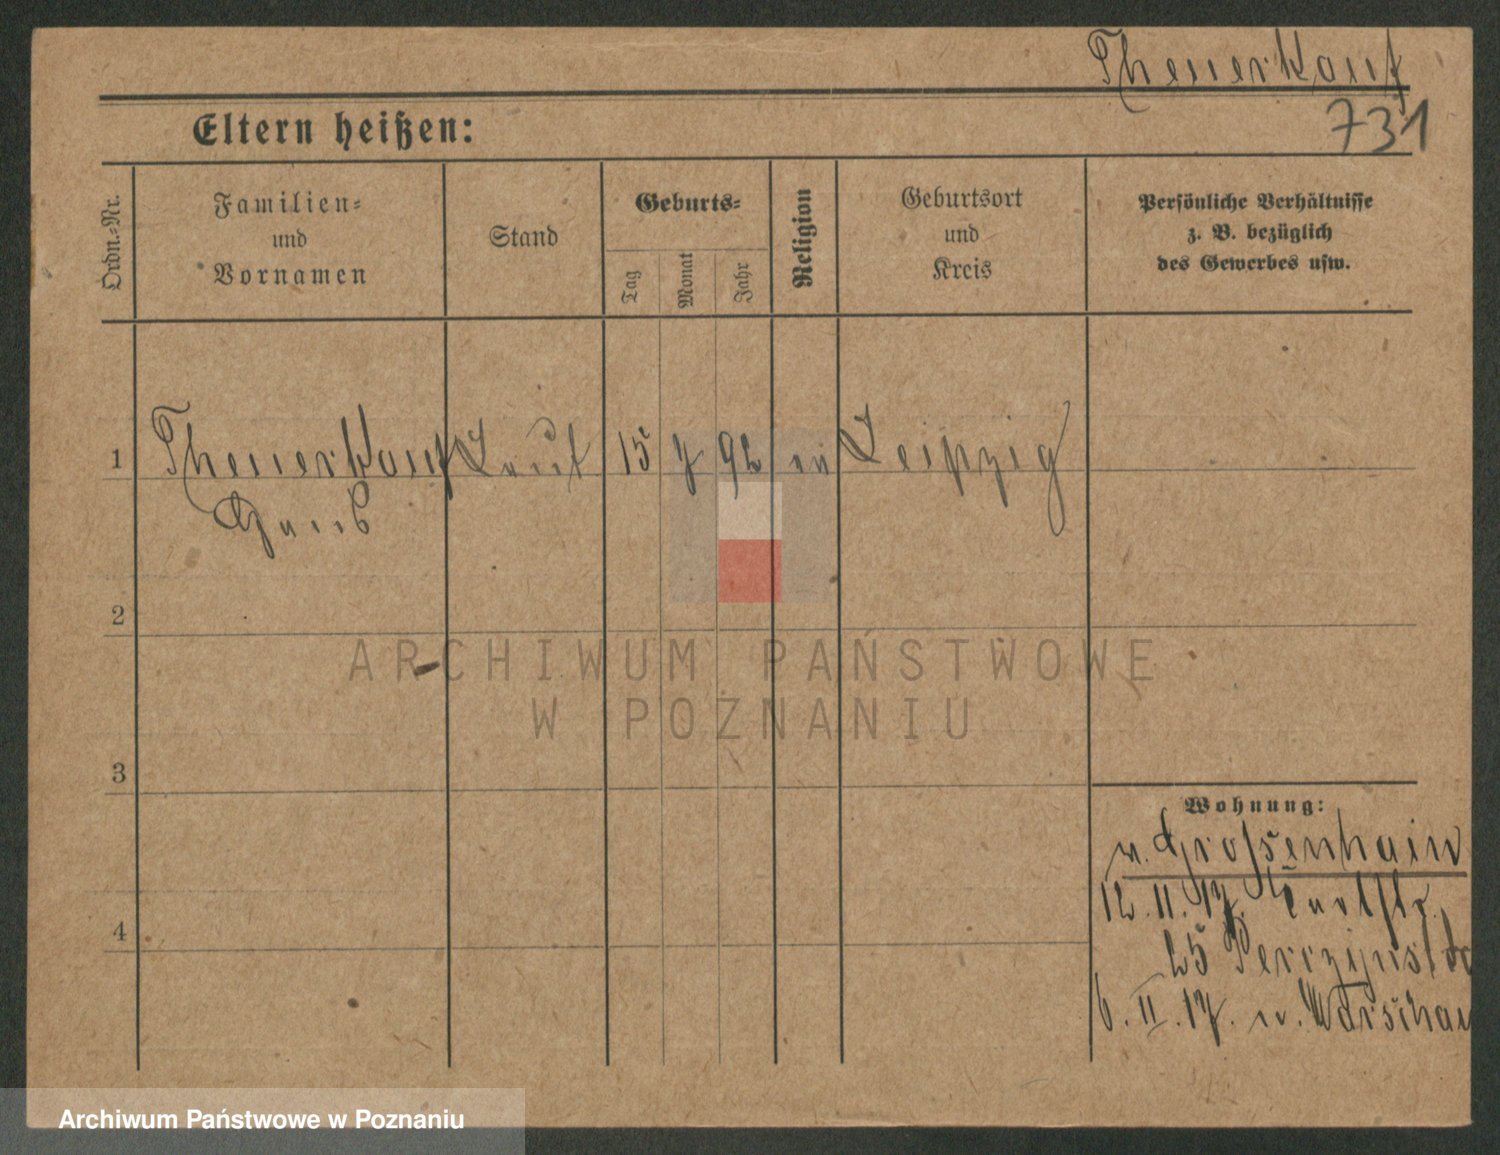 Theuerkauf
731
Eltern heißen:
Ordn.-Nr.
Familien-
und
Vornamen
Stand
Geburts-
Tag
Monat
Jahr
Religion
Geburtsort
und
Kreis
Persönliche Verhältnisse
z. B. bezüglich
des Gewerbes usw.
1 Theuerkauf Leut 15 7 92 Leipzig
Hans
2
3
4
Wohnung:
v. Großenhain
12. II. 17.
25
6. II. 17. n. Warschau
ARCHIWUM PAŃSTWOWE
W POZNANIU
Archiwum Państwowe w Poznaniu